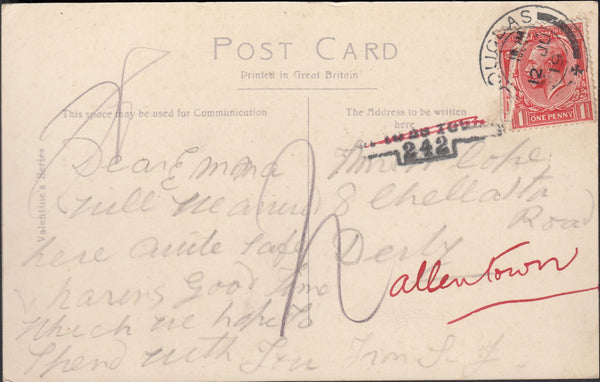 DOUGLAS
12 JU
19
ONE PENNY
1 1
POST CARD
Printed in Great Britain
This space may be used for Communication
The Address to be written
here
Valentine's Series
242
Dear Emma
well
here quite safe
having Good time
Which we hope to
Spend with
Cope
8 Chellaston
Road
Derby
allentown